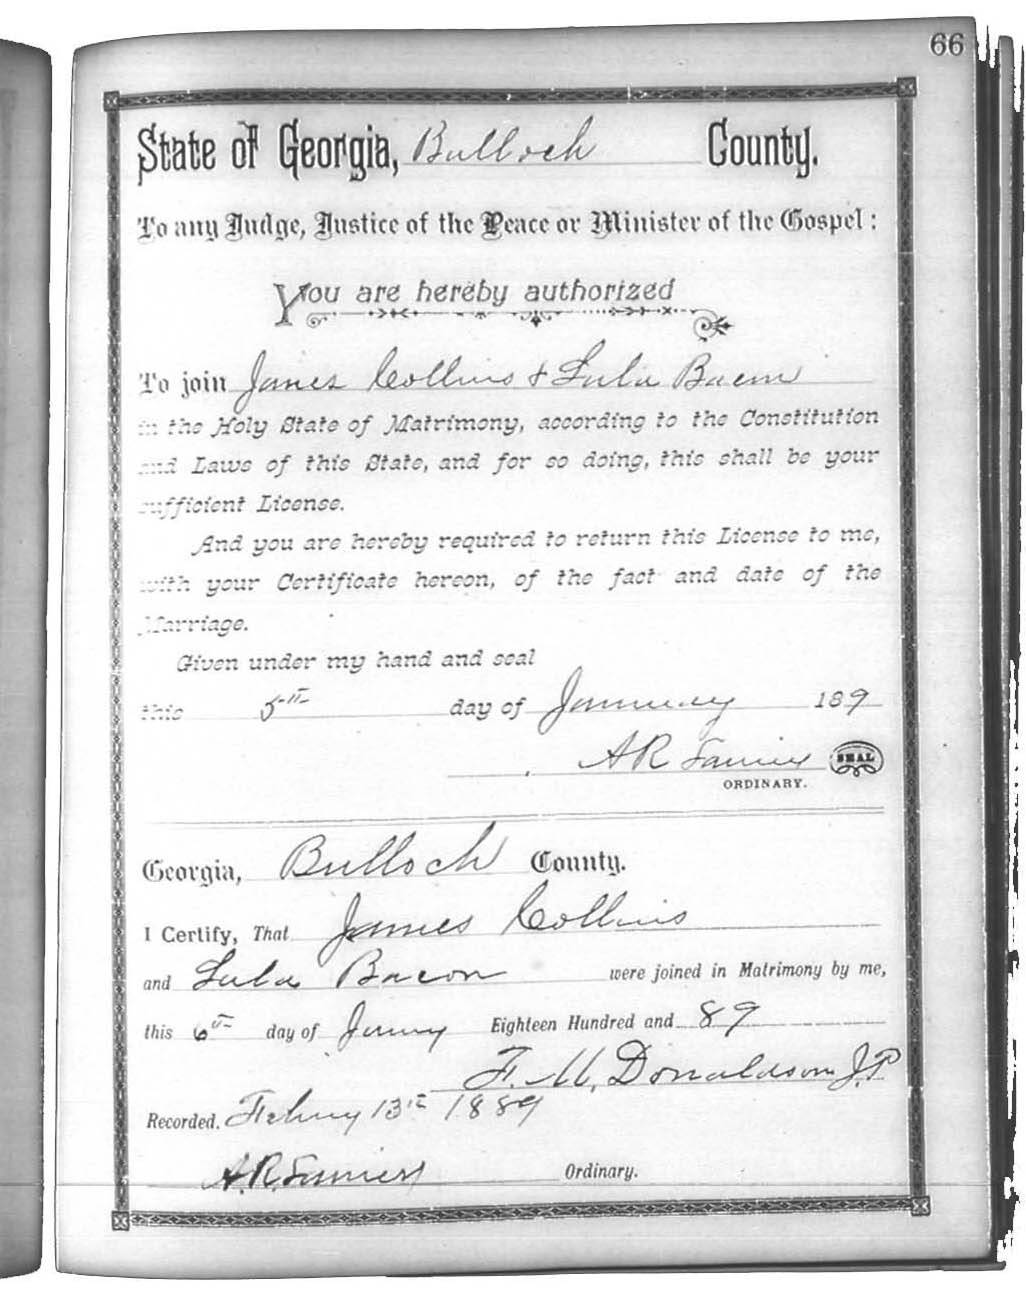 66
State of Georgia, Bulloch County.
To any Judge, Justice of the Peace or Minister of the Gospel:
You are hereby authorized
To join James Collins & Lula Bacon
in the Holy State of Matrimony, according to the Constitution
and Laws of this State, and for so doing, this shall be your
sufficient License.
And you are hereby required to return this License to me,
with your Certificate hereon, of the fact and date of the
Marriage.
Given under my hand and seal
this 5th day of January 189
A R Lanier SEAL
ORDINARY.
Georgia, Bulloch County.
I Certify, That James Collins
and Lula Bacon were joined in Matrimony by me,
this 6th day of Janny Eighteen Hundred and 89
F. M. Donaldson J.P.
Recorded. Febury 13th 1889
A.R. Lanier Ordinary.